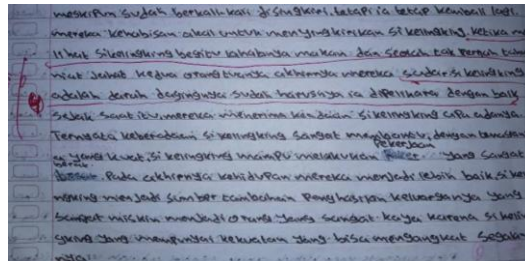 meskipun sudah berkali-kali disingkiri, tetapi ia tetap kembali lagi.
mereka kehabisan akal untuk menyingkirkan si kelingking, ketika m
lihat sikelingking begitu lahapnya makan dan seolah tak pernah tahu
niat jahat kedua orangtuanya akhirnya mereka sadar si kelingking
adalah darah dagingnya sudah harusnya ia dipelihara dengan baik
sejak saat itu, mereka menerima keadaan si kelingking apa adanya.
Ternyata keberadaan si kelingking sangat membantu, dengan
yang kuat, si kelingking mampu melakukan pekerjaan yang sangat
berat. Pada akhirnya kehidupan mereka menjadi lebih baik, si ke
ngking menjadi sumber tambahan penghasilan keluarganya yang
sangat miskin menjadi orang yang sangat kaya karena si keli
yang mempunyai kekuatan yang bisa mengangkat segala
nya